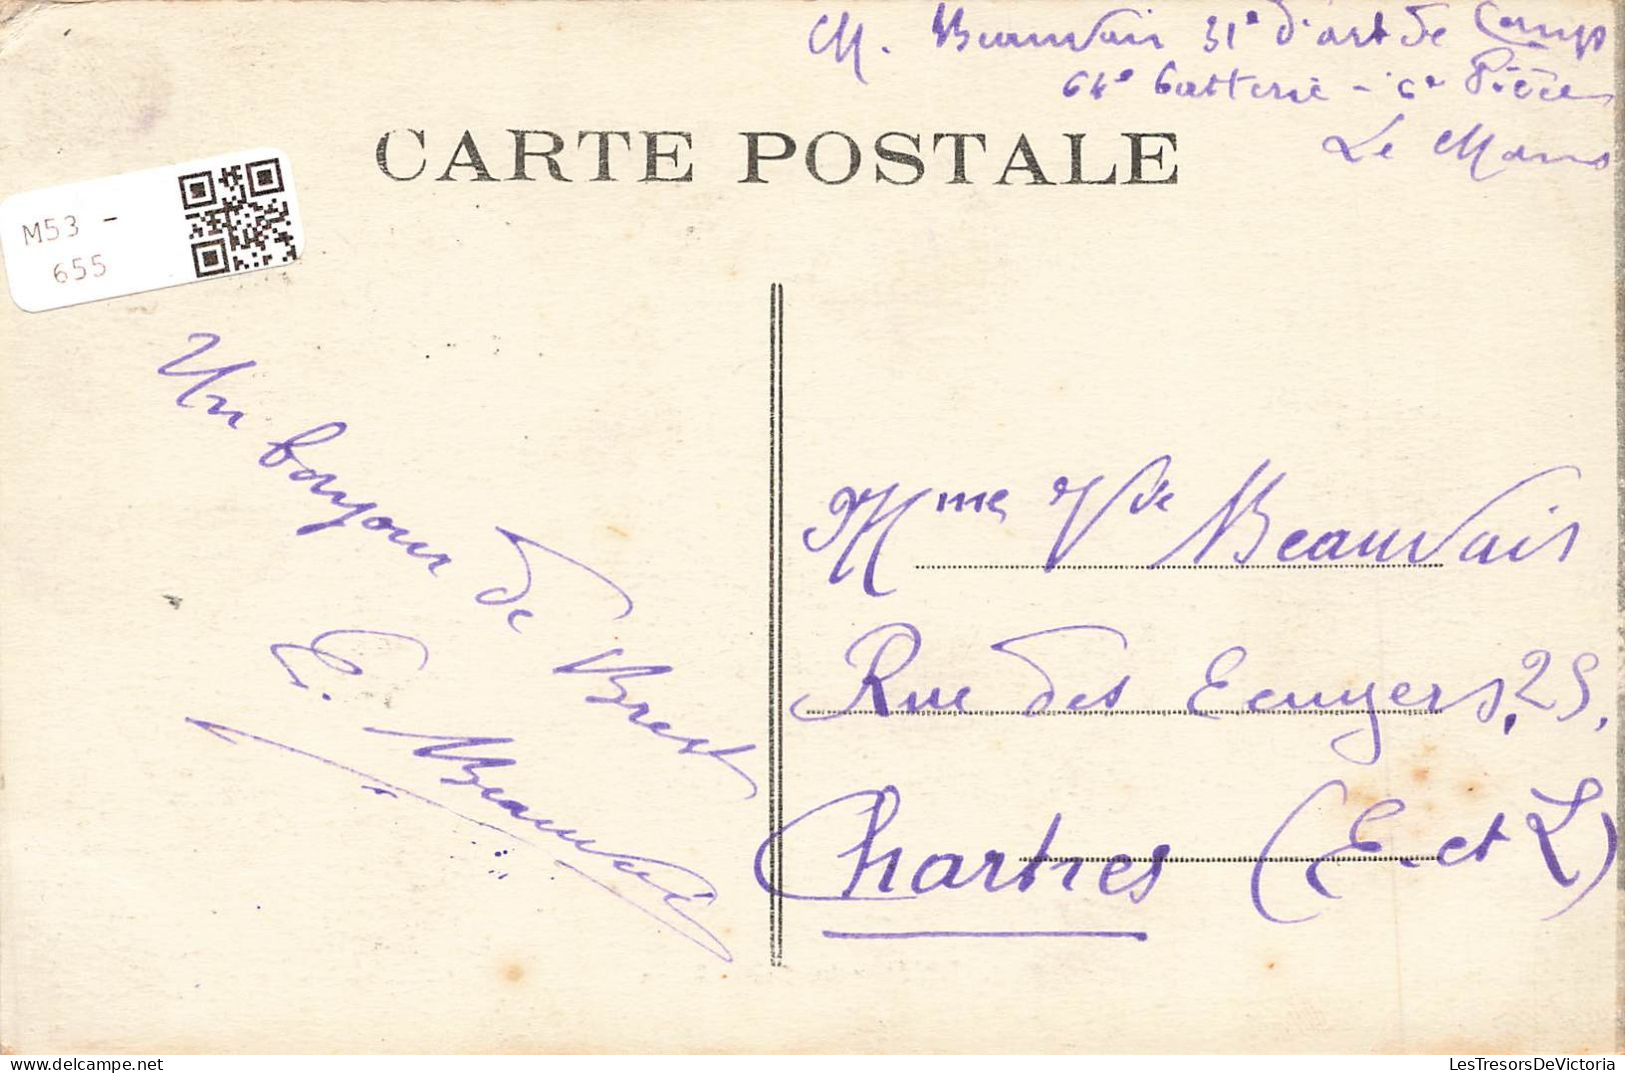 M. Beauvais 31e d'art de Camp
64e batterie - 6e Pièce
Le Mans
CARTE POSTALE
M53 -
655
Un bonjour de Brest
E. Beauvais
Mme Vve Beauvais
Rue des Ecuyers, 25.
Chartres (E. et L)
LesTresorsDeVictoria